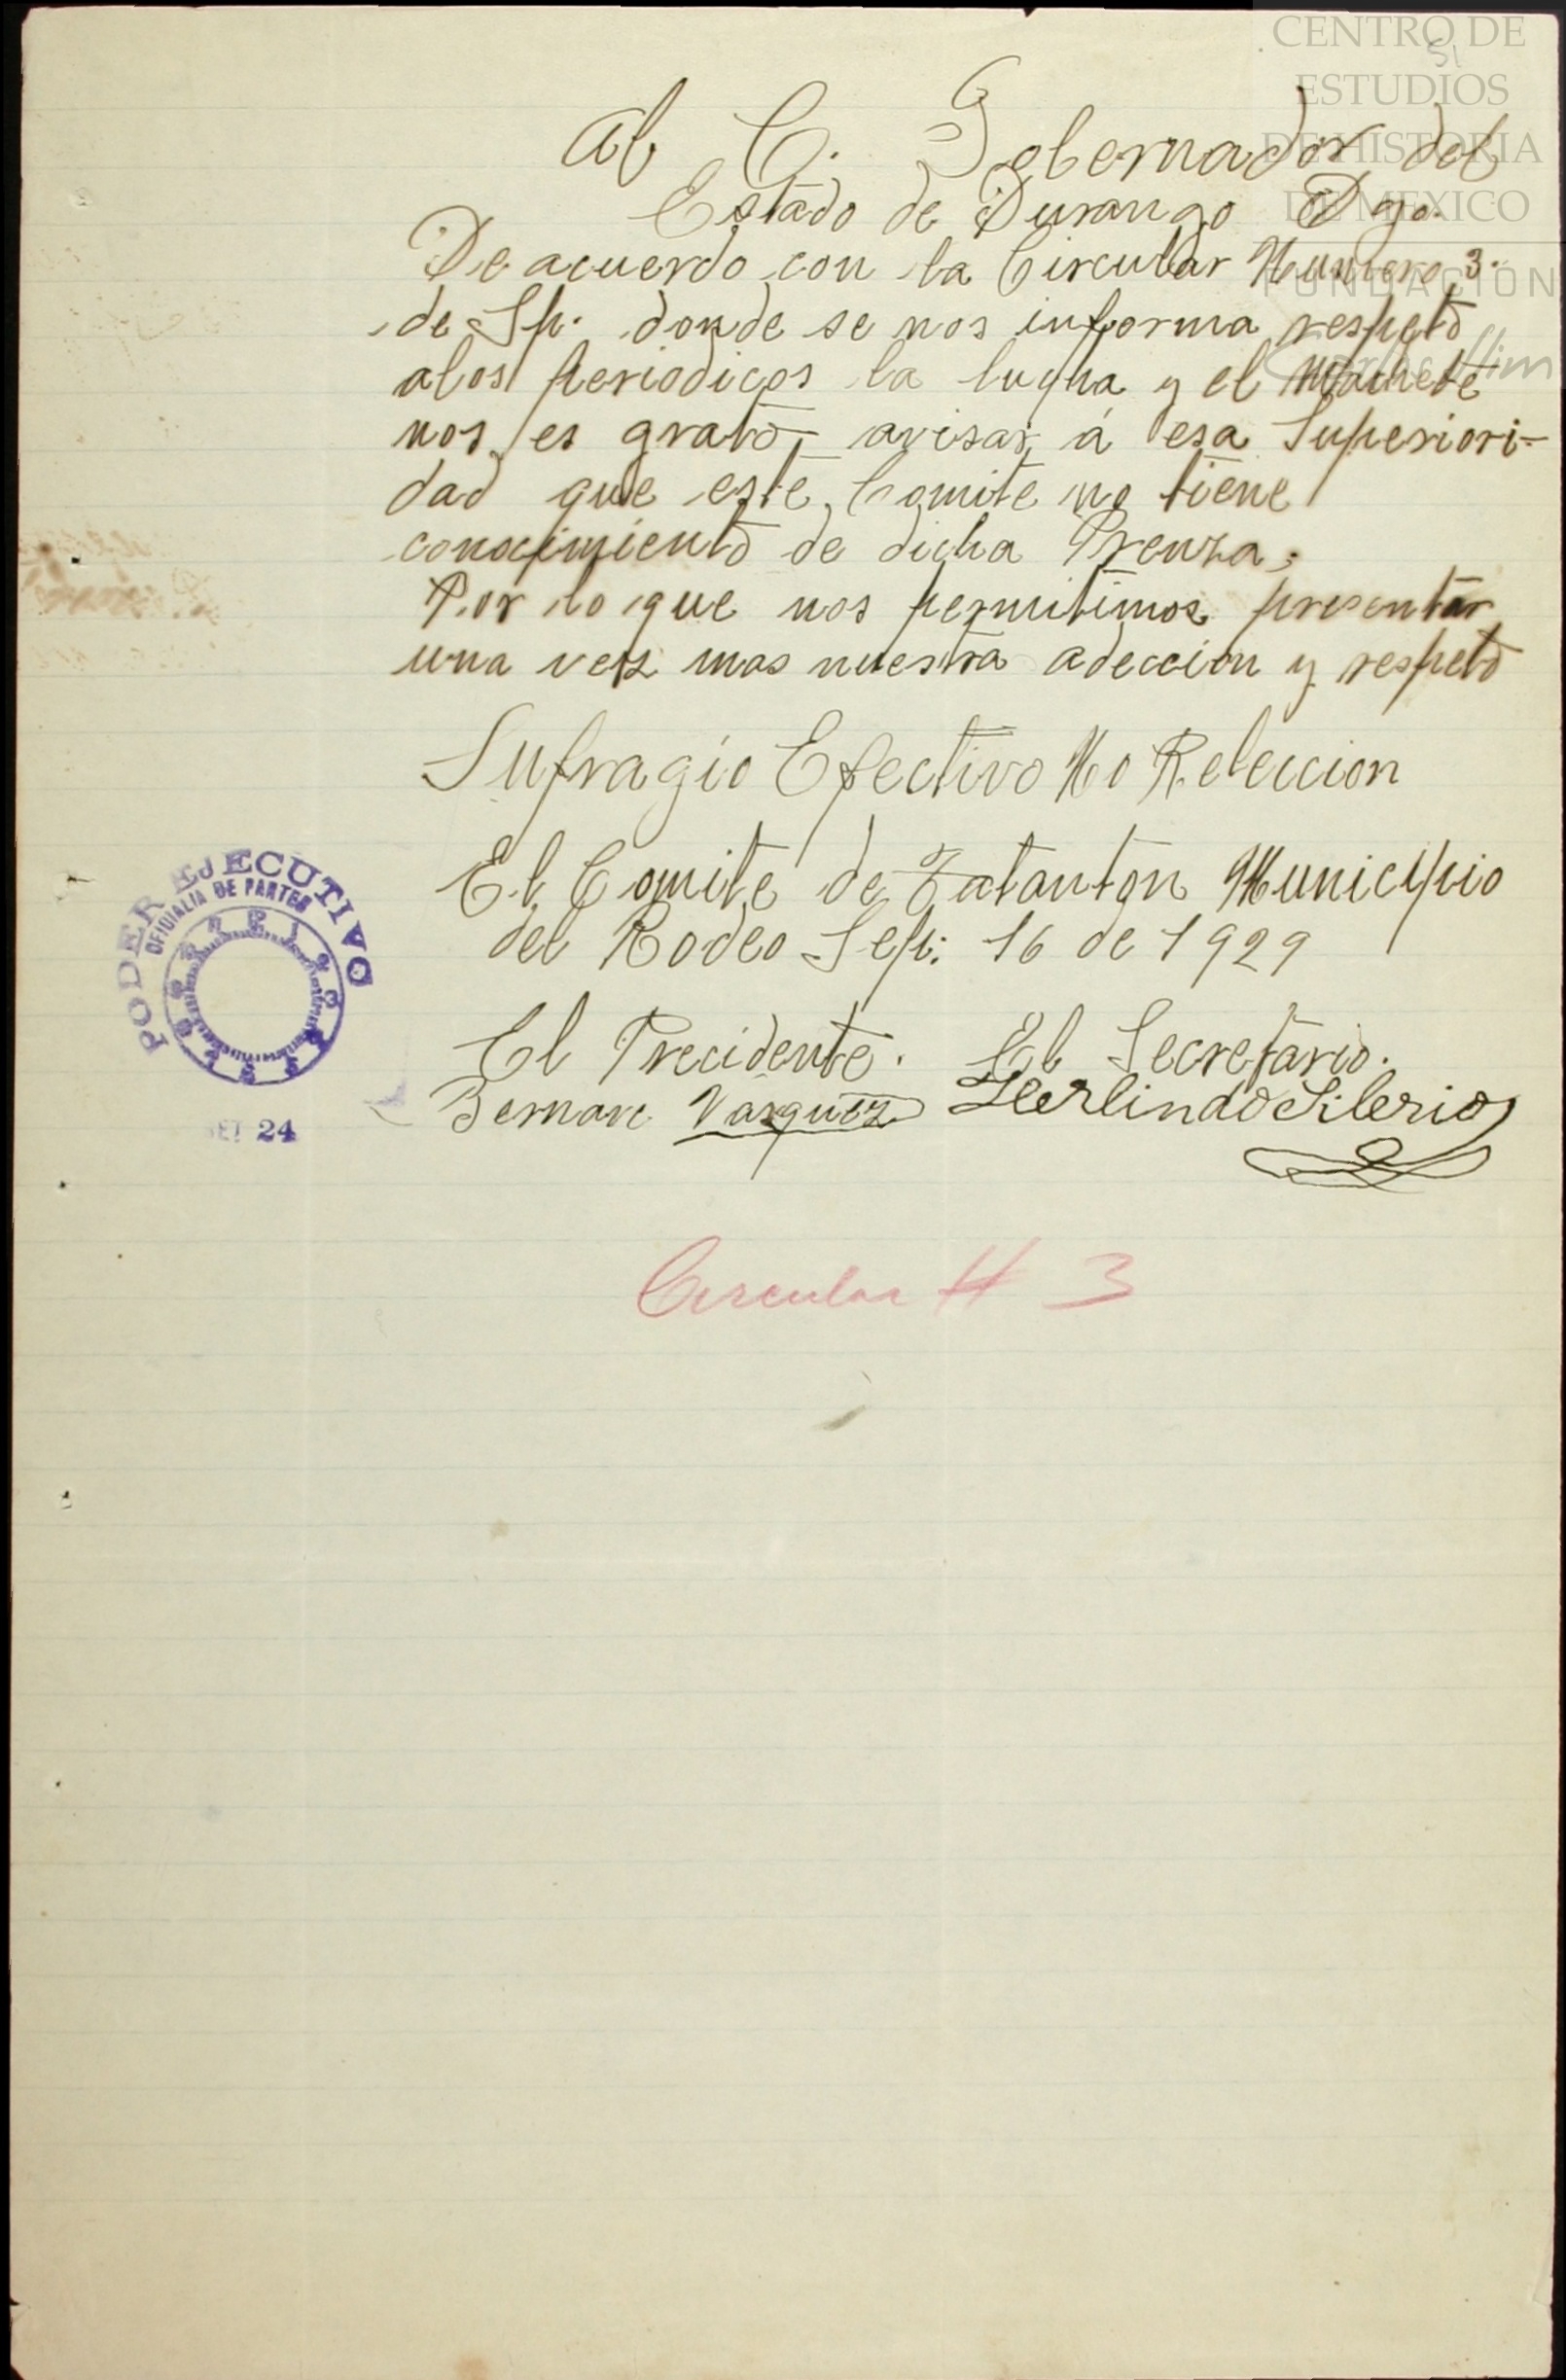 CENTRO DE
ESTUDIOS
DE HISTORIA
DE MEXICO
FUNDACIÓN
Carlos Slim
51
Al C. Gobernador del
Estado de Durango Dgo.
De acuerdo con la Circular Numero 3.
de Sp. donde se nos informa respeto
alos periodicos la lucha y el Machete
nos es grato avisar á esa Superiori-
dad que este Comite no tiene
conocimiento de dicha Prenza.
Por lo que nos permitimos presentar
una vez mas nuestra adeccion y respeto
Sufragio Efectivo No Releccion
El Comite de Municipio
del Rodeo Sep: 16 de 1929
El Precidente. El Secretario.
Bernave Vazquez Herlindo Silerio
PODER EJECUTIVO
OFICIALIA DE PARTES
SET 24
Circular # 3